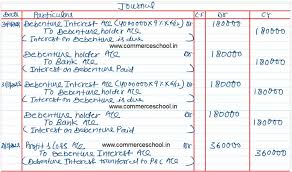 Journal
Date Particulars Cr Dr Cr
Debenture Interest A/c (4000000X9X6/12) Dr 180000
To Debenture holder A/c 180000
(Interest on Debenture is due)
www.commerceschool.in
Debenture holder A/c Dr 180000
To Bank A/c 180000
(Interest on Debenture Paid)
Debenture Interest A/c (4000000X9X6/12) Dr 180000
To Debenture holder A/c 180000
(Interest on debenture is due)
www.commerceschool.in
Debenture holder A/c Dr 180000
To Bank A/c 180000
(Interest on Debenture Paid)
www.commerceschool.in
Profit & Loss A/c Dr 360000
To Debenture Interest A/c 360000
(Debenture Interest transferred to P&L A/c)